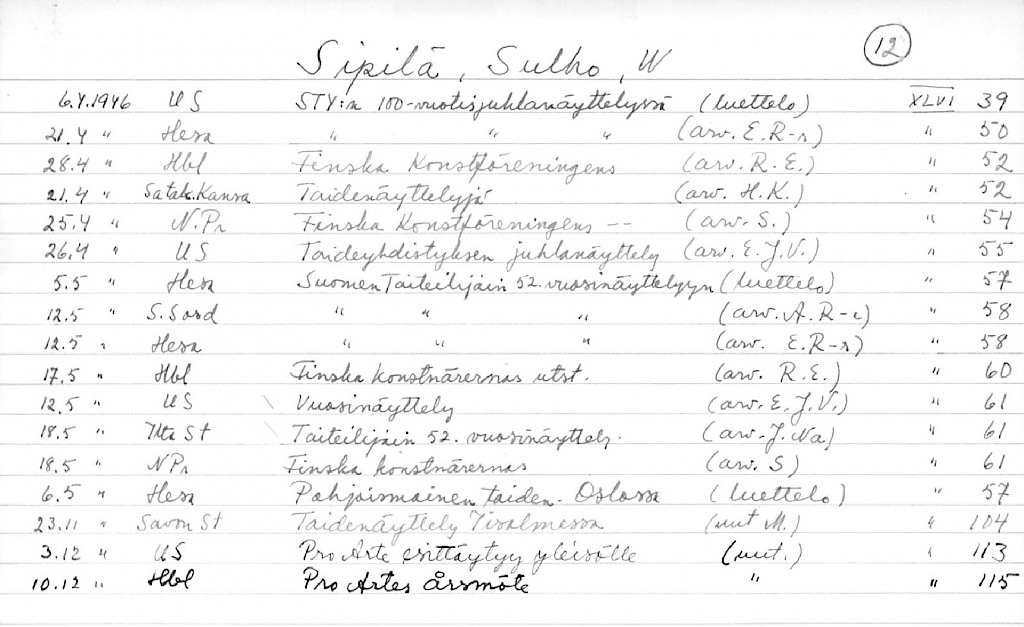 12
Sipilä, Sulho, W
6.4.1946 US STY:n 100-vuotisjuhlanäyttelyssä (luettelo) XLVI 39
21.4 " Hesa " " " (arv. E.R-s) " 50
28.4 " Hbl Finska Konstföreningens (arv. R.E.) " 52
21.4 " Satak.Kansa Taidenäyttelyjä (arv. H.K.) " 52
25.4 " N.Pr Finska Konstföreningens -- (arv. S.) " 54
26.4 " US Taideyhdistyksen juhlanäyttely (arv. E.J.V.) " 55
5.5 " Hesa Suomen Taiteilijain 52. vuosinäyttelyyn (luettelo) " 57
12.5 " S.Sosd " " " (arv. A.R-c) " 58
12.5 " Hesa " " " (arv. E.R-s) " 58
17.5 " Hbl Finska konstnärernas utst. (arv. R.E.) " 60
12.5 " US Vuosinäyttely (arv. E.J.V.) " 61
18.5 " Ilta St Taiteilijain 52. vuosinäyttely. (arv. J.Na) " 61
18.5 " NPr Finska konstnärernas (arv. S) " 61
6.5 " Hesa Pohjoismainen taiden. Oslossa (luettelo) " 57
23.11 " Savon St Taidenäyttely Iisalmessa (uut M.) " 104
3.12 " US Pro Arte esittäytyy yleisölle (uut.) " 113
10.12 " Hbl Pro Artes årsmöte " " 115